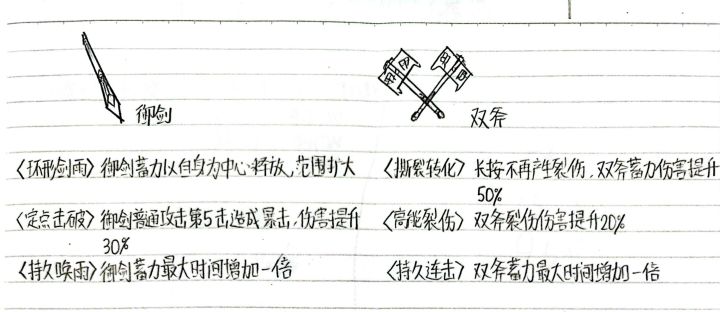 御剑
双斧
〈环形剑雨〉御剑蓄力以自身为中心释放，范围扩大
〈撕裂转化〉长按不再产生裂伤，双斧蓄力伤害提升
50%
〈定点击破〉御剑普通攻击第5击造成暴击，伤害提升
30%
〈高能裂伤〉双斧裂伤伤害提升20%
〈持久唤雨〉御剑蓄力最大时间增加一倍
〈持久连击〉双斧蓄力最大时间增加一倍